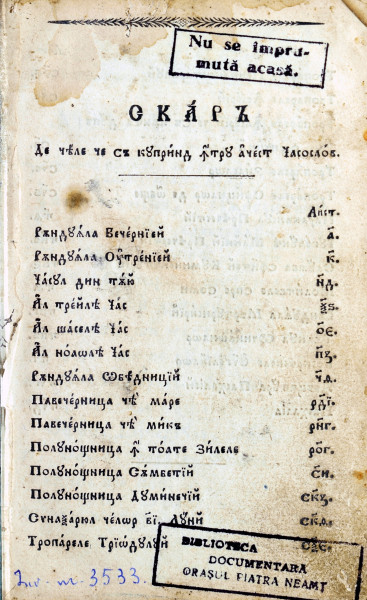 Nu se împru-
mută acasă.
СКА́РЪ
Де чѣле че съ куприн́д ꙟ҆тру а҆че́ст Часосло́в.
Ли́ст.
Рѫндꙋѧ́ла Вече́рнїей а҃.
Рѫндꙋѧ́ла Оу҆тре́нїей к҃.
Ча́сꙋл дин тѫ́ю
Ал тре́йлѣ Час
Ал ша́селѣ Час ѻ҃е.
Ал но́ѡлѣ Час п҃з.
Рѫндꙋѧ́ла Ѡбѣ́дницїй
Павече́рница чѣ ма́ре
Павече́рница чѣ ми́къ
Полꙋно́щница ꙟ҆ то́ате Зи́леле
Полꙋно́щница Сѫмбе́тїй с҃и.
Полꙋно́щница Дꙋми́нечїй
Сѵнаѯа́рюл че́лѡр в҃і Лꙋ́нй
Тропа́реле Трїѡ́дꙋлꙋй
BIBLIOTECA
DOCUMENTARĂ
ORAȘUL PIATRA NEAMȚ
Inv. nr. 3533.